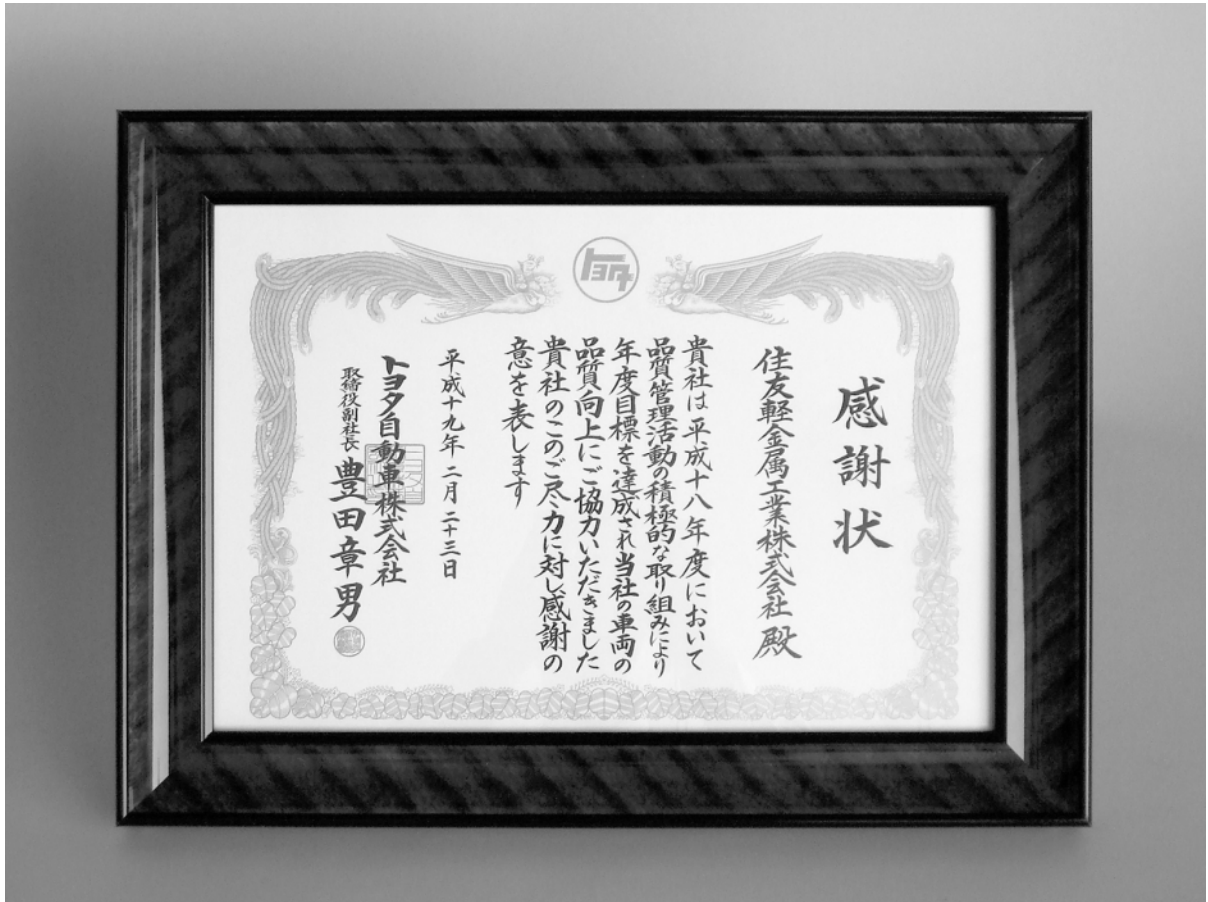 トヨタ
感謝状
住友軽金属工業株式会社 殿
貴社は平成十八年度において
品質管理活動の積極的な取り組みにより
年度目標を達成され当社の車両の
品質向上にご協力いただきました
貴社のこのご尽力に対し感謝の
意を表します
平成十九年 二月 二十三日
トヨタ自動車株式会社
取締役副社長 豊田章男